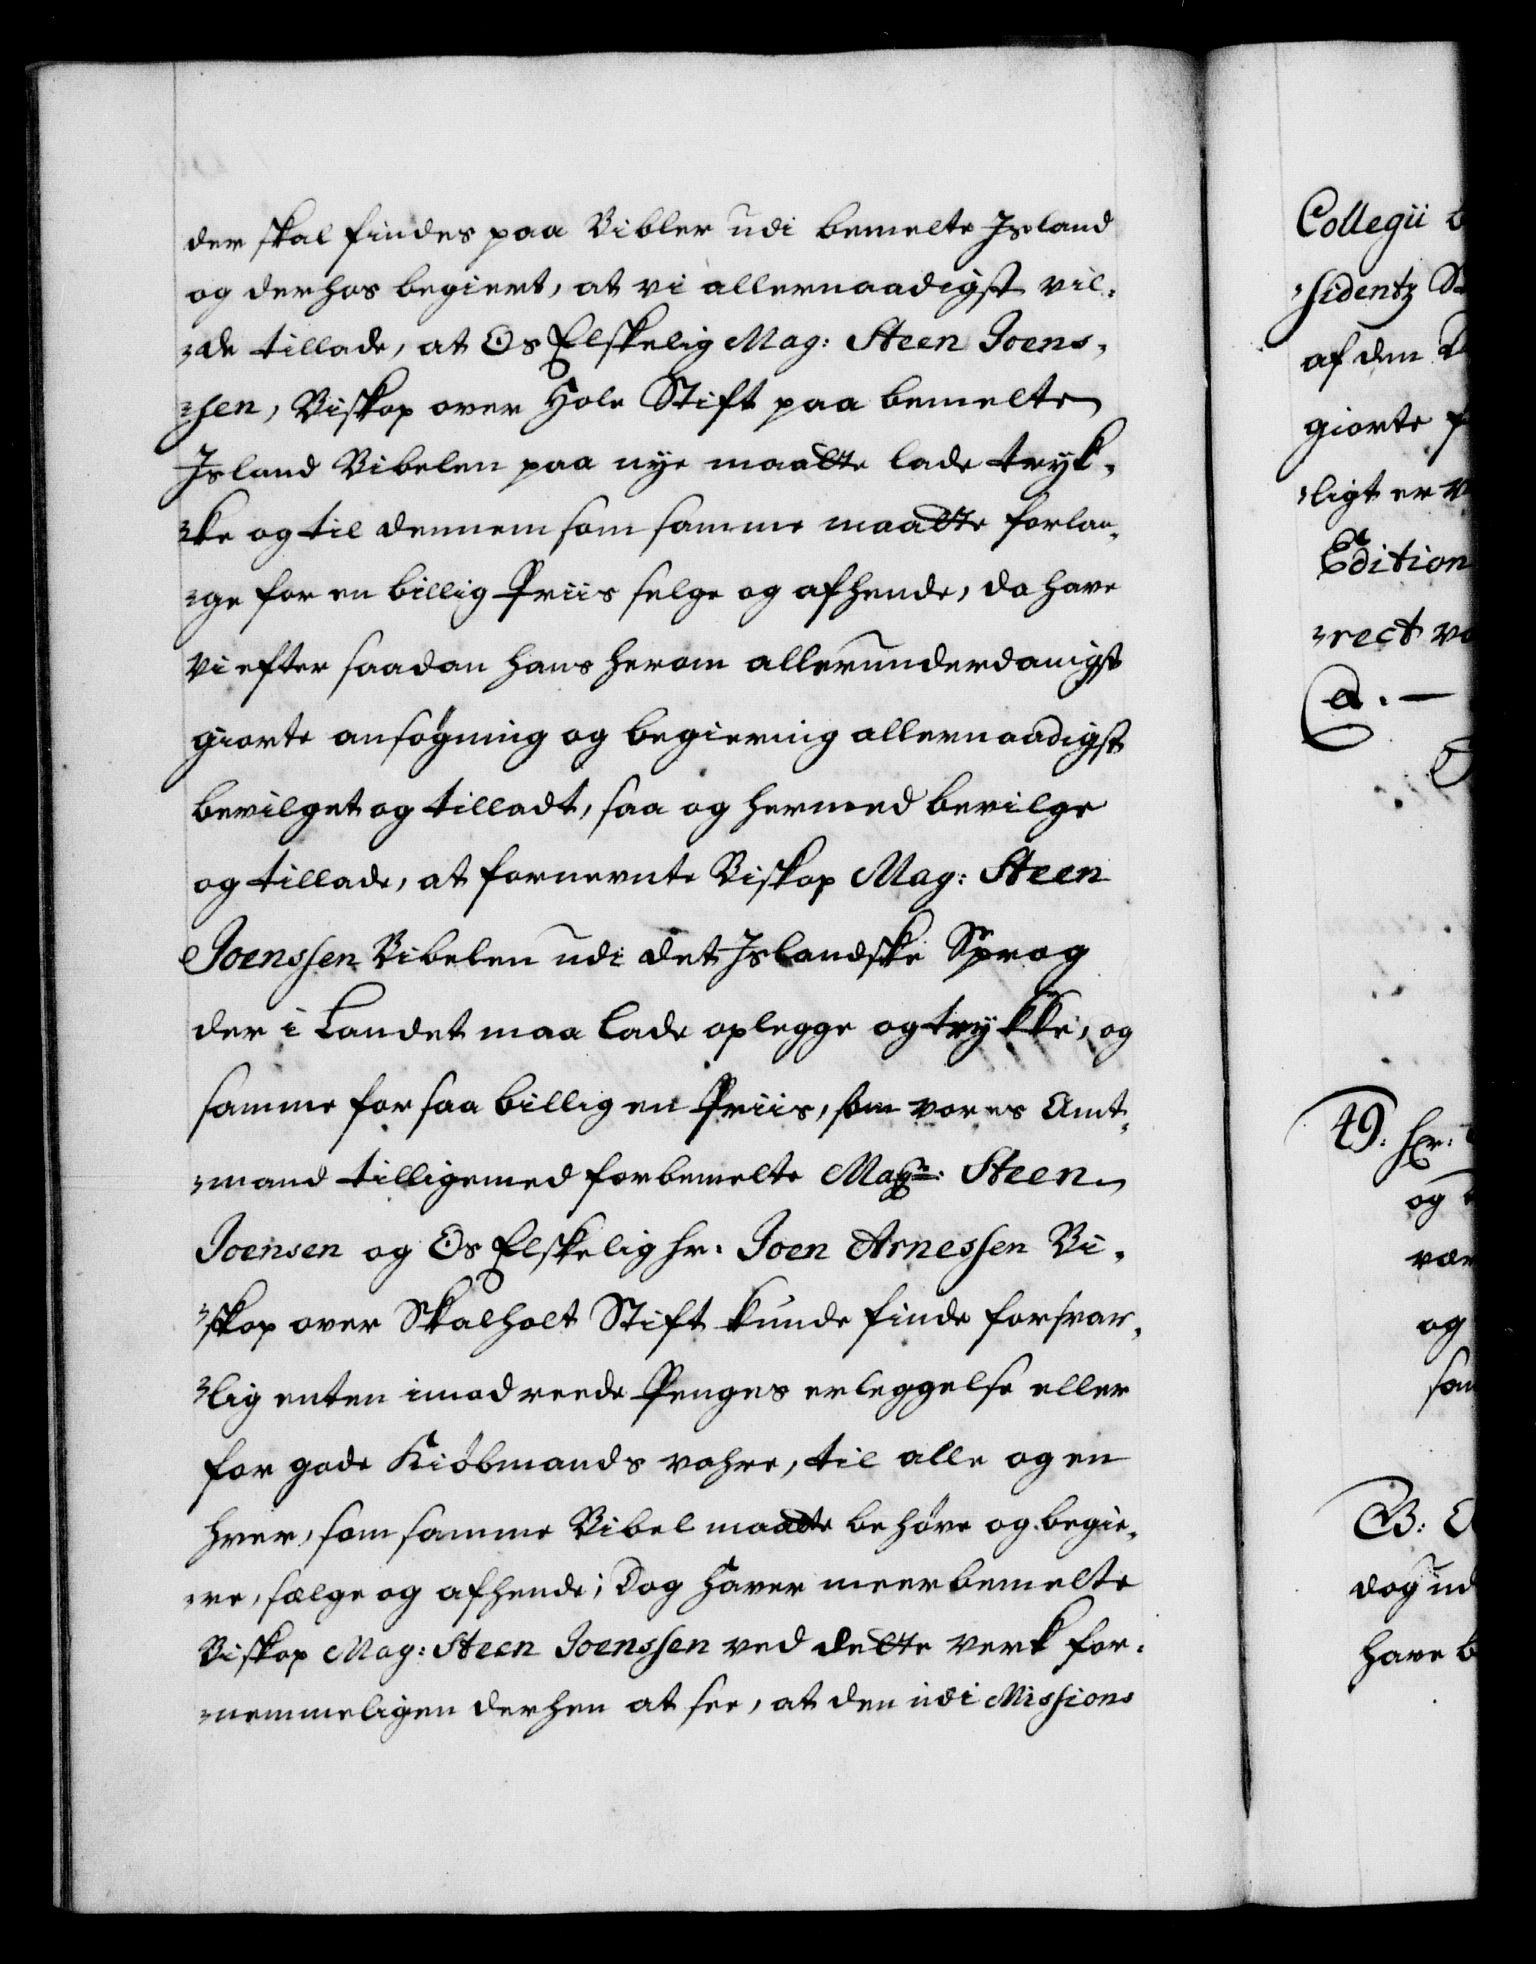 der skal findes paa Bibler udi bemelte Jsland
og derhos begiert, at vi allernaadigst vil-
-de tillade, at Os Elskelig Mag: Steen Joens-
-sen, Biskop over Hole Stift paa bemelte
Jsland Bibelen paa nye maatte lade tryk-
-ke og til dennem som samme maatte forlan-
-ge for en billig Priis selge og afhende, da have
Vi efter saadan hans herom allerunderdanigst
giorte ansøgning og begiering allernaadigst
bevilget og tilladt, saa og hermed bevilge
og tillade, at fornevnte Biskop Mag: Steen
Joenssen Bibelen udi det Jslandske Sprog
der i Landet maa lade oplegge og trykke, og
samme for saa billig en Priis, som vores Amt-
-mand tilligemed forbemelte Magr: Steen
Joensen og Os Elskelig Hr. Joen Arnessen Bi-
-skop over Skalholt Stift kunde finde forsvar-
-lig enten imod reede Penges erleggelse eller
for gode Kiöbmands vahre, til alle og en
hver, som samme Bibel maatte behøve og begie-
-re, sælge og afhende; Dog haver meerbemelte
Biskop Mag: Steen Joenssen ved dette verk for-
-nemmeligen derhen at see, at den udi Missions
Collegii
-sidentz
af den
giorte
-ligt er
Edition
-rect
a. —
49. Hr:
og
vær
og
B:
dog ud
have